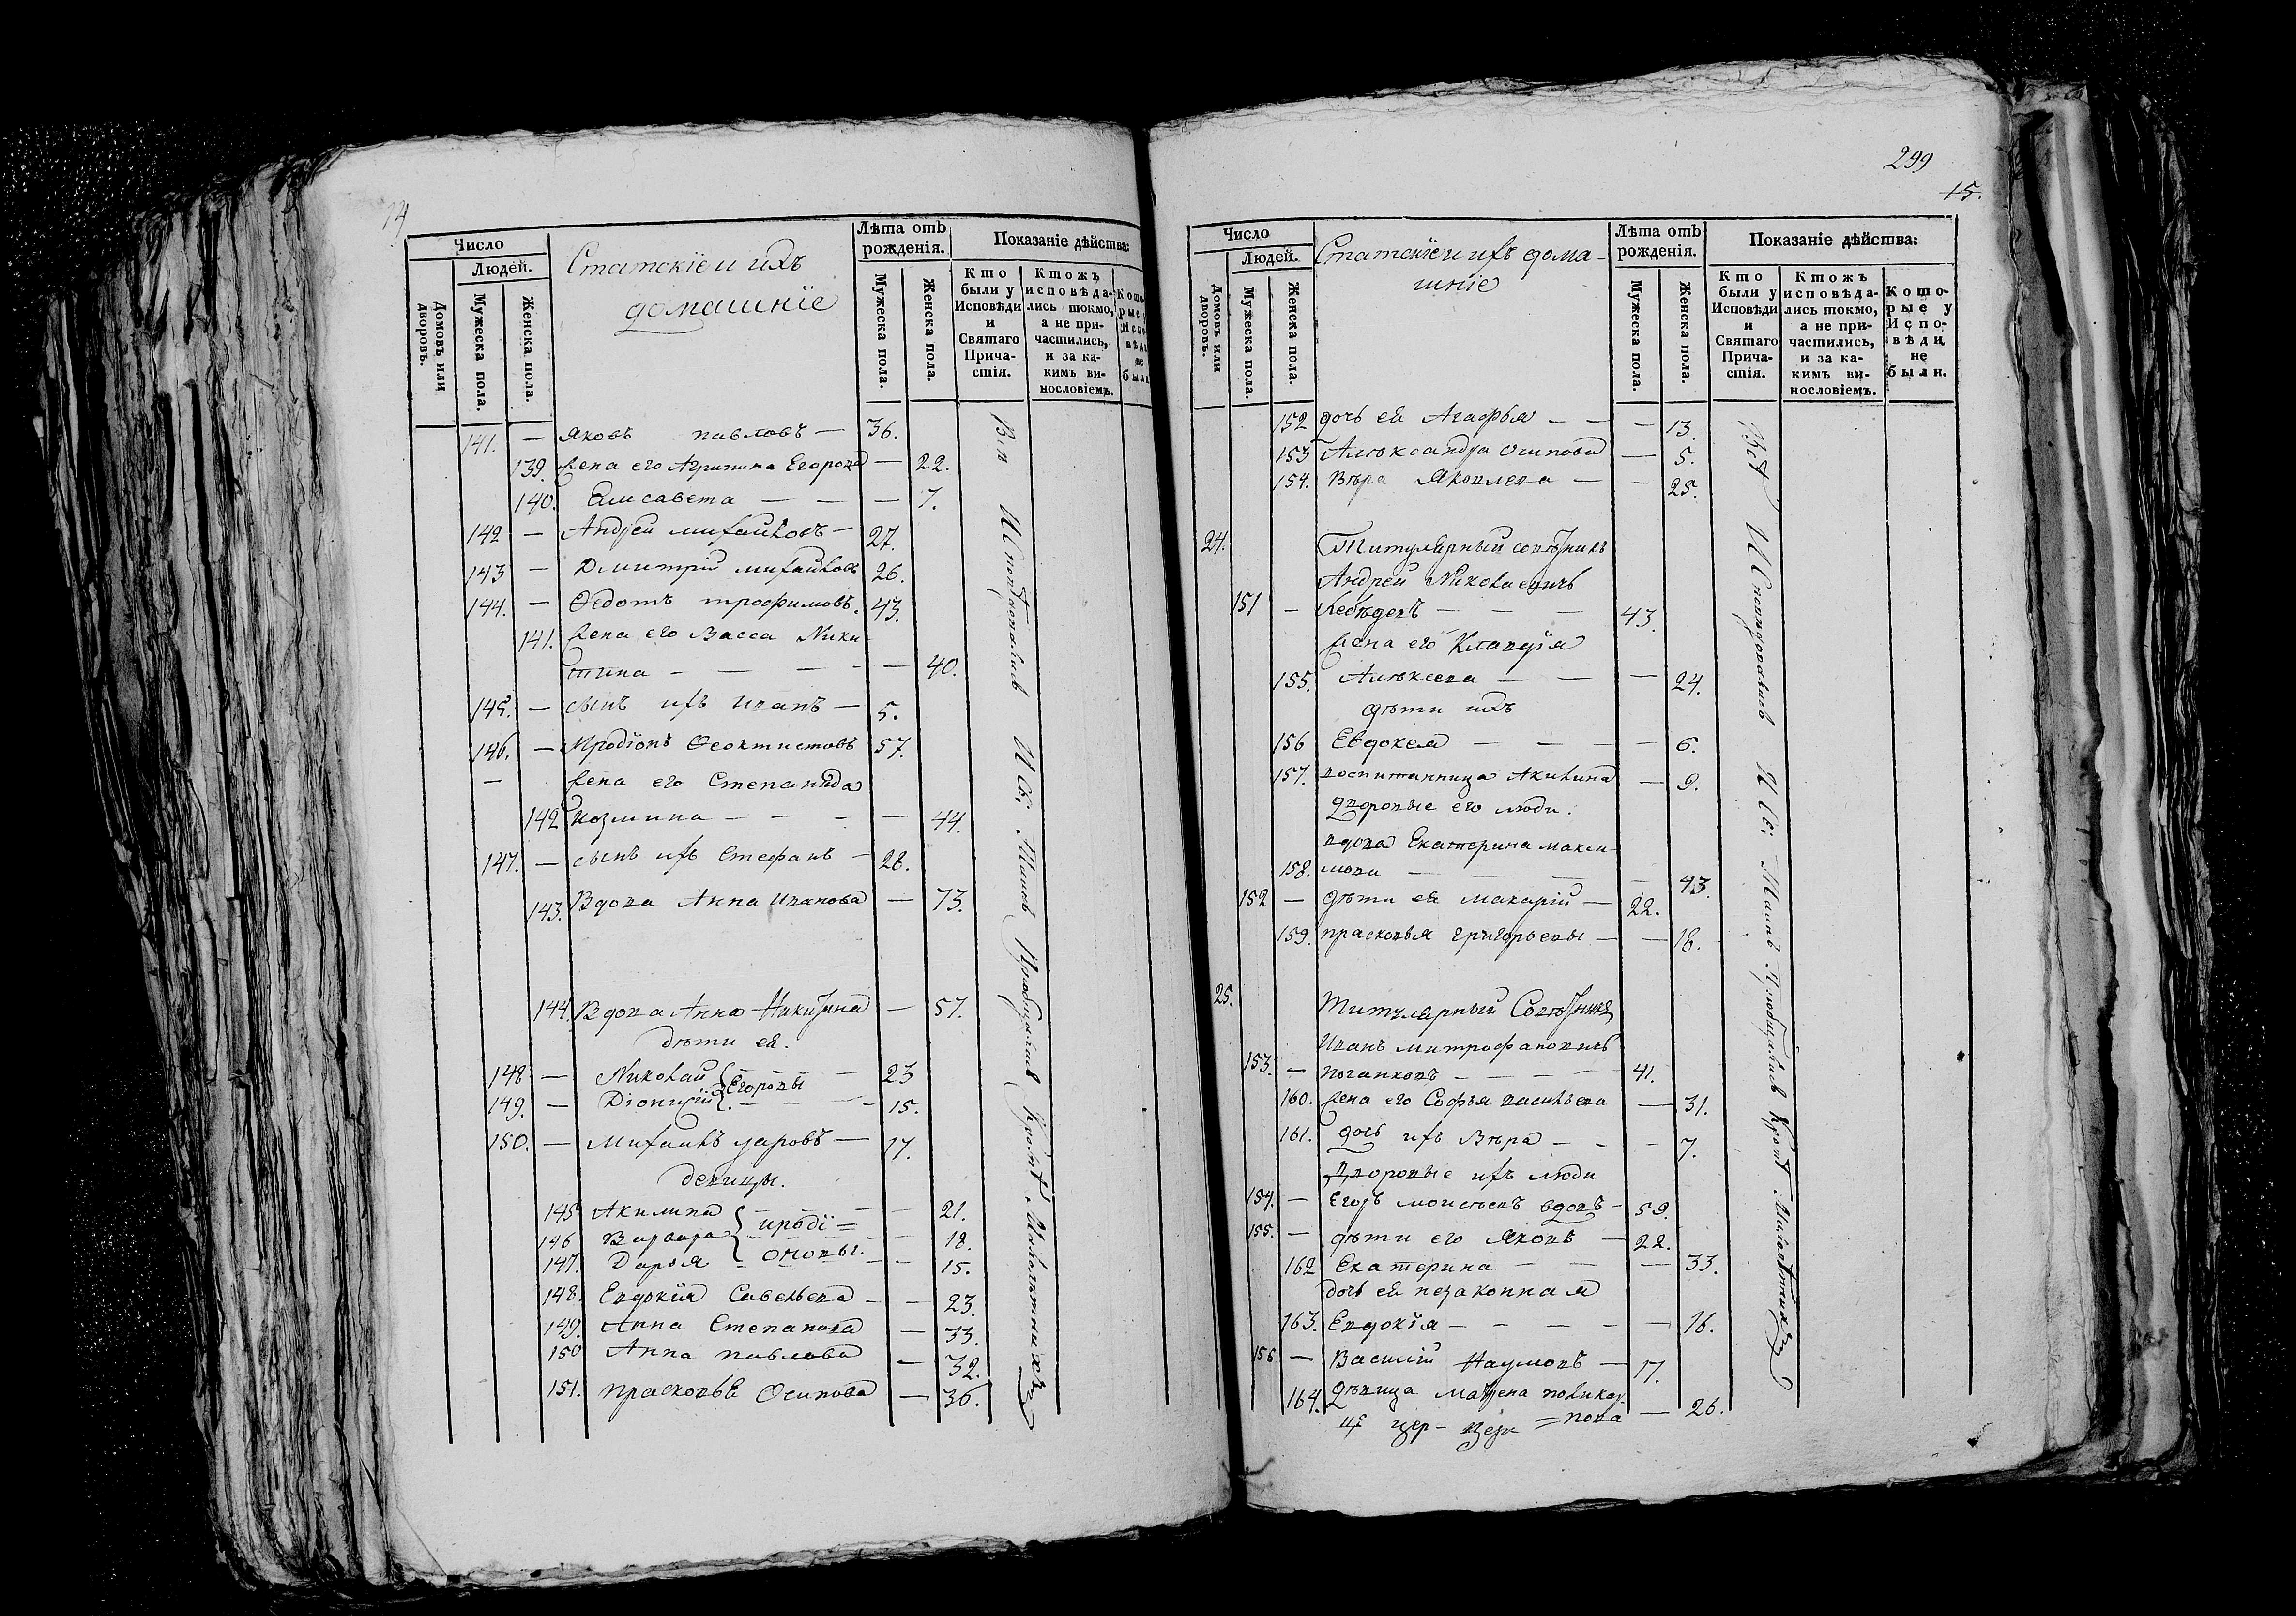 14
Число
Людей.
Домовъ или дворовъ.
Мужеска пола.
Женска пола.
Статскіе и ихъ
домашніе
Лѣта отъ рожденія.
Мужеска пола.
Женска пола.
Показаніе дѣйства:
Кто были у Исповѣди и Святаго Причастія.
Ктожъ исповѣдались токмо, а не причастились, и за какимъ винословіемъ.
141. — Яковъ павловъ — 36.
139. жена его Агрипина Егорова — 22.
140. Елисавета — — — 7.
142 — Андрей михайловъ — 27.
143 — Дмитрій михайловъ 26.
144. — Ѳедотъ трофимовъ. 43.
141. жена его Васса Ники-
тина — — — — 40.
145. — сынъ ихъ иванъ — 5.
146. — Иродіонъ Ѳеоктистовъ 57.
— жена его Степанида
142 козмина — — — — 44.
147. — сынъ ихъ Стефанъ — 28.
143. Вдова Анна иванова — 73.
144. Вдова Анна Никитина — 57.
дѣти ея.
148 — Николай — — 23
149. — Діонисій Егоровы — 15.
150. — Михаилъ уаровъ — 17.
девицы.
145 Акилина — — 21.
146 Варвара ироді= — 18.
147. Дарья оновы. — 15.
148. Евдокія Савельева — — 23.
149. Анна Степанова — 33.
150 Анна павлова — 32.
151. прасковья Осипова — 36.
Вси Исповѣдовались И Св. Таинъ Пріобщались Кромѣ Малолѣтнихъ
299
15.
Число
Людей.
Домовъ или дворовъ.
Мужеска пола.
Женска пола.
Статскіе и ихъ дома-
шніе
Лѣта отъ рожденія.
Мужеска пола.
Женска пола.
Показаніе дѣйства:
Кто были у Исповѣди и Святаго Причастія.
Ктожъ исповѣдались токмо, а не причастились, и за какимъ винословіемъ.
Которые у Исповѣди не были.
152 дочь ея Агафья — — — 13.
153 Александра Осипова — 5.
154. Вѣра Яковлева — — 25.
24. Титулярный совѣтникъ
Андрей Николаевичь
151 — Лебедевъ — — — 43.
жена его Клавдія
155. Алексеева — — — 24.
дѣти ихъ
156 Евдокея — — — — 6.
157. воспитанница Акилина — 9.
дворовые его люди.
вдова Екатерина макси-
158. мова — — — 43.
152 — дѣти ея макарій — 22.
159. прасковья григорьевы — — 18.
25. Титулярный Совѣтникъ
Иванъ митрофановичь
153. — поганковъ — — — — 41.
160. жена его Софья васильева — 31.
161. дочь ихъ Вѣра — — — 7.
Дворовые ихъ люди
154. — Егоръ моисѣевъ вдовъ — 59.
155. — дѣти его Яковъ — 22.
162 Екатерина — — — 33.
дочь ея незаконная
163. Евдокія — — — — — 16.
156 — Василій Наумовъ — 17.
164. Дѣвица матрена поликар-
=пова — 26.
Вси Исповѣдовались И Св. Таинъ Пріобщались Кромѣ Малолѣтнихъ